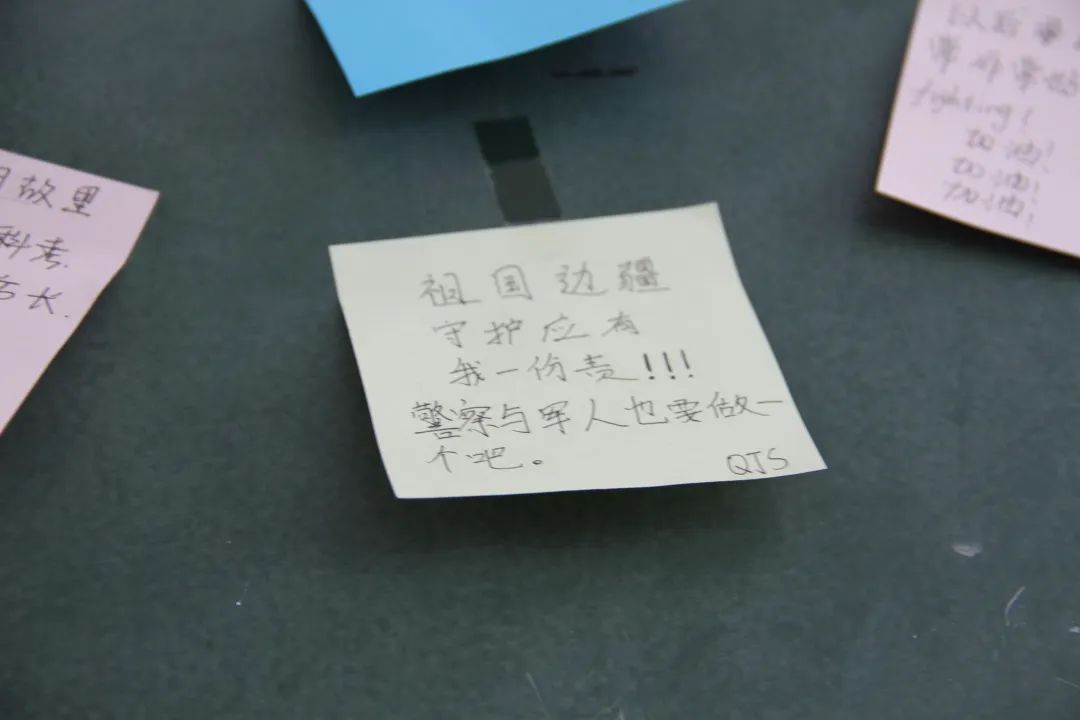 故里
科考.
长.
祖国边疆
守护应有
我一份责!!!
警察与军人也要做一
个吧。
QJS
以后
常非常好
fighting!
加油!
加油!
加油!